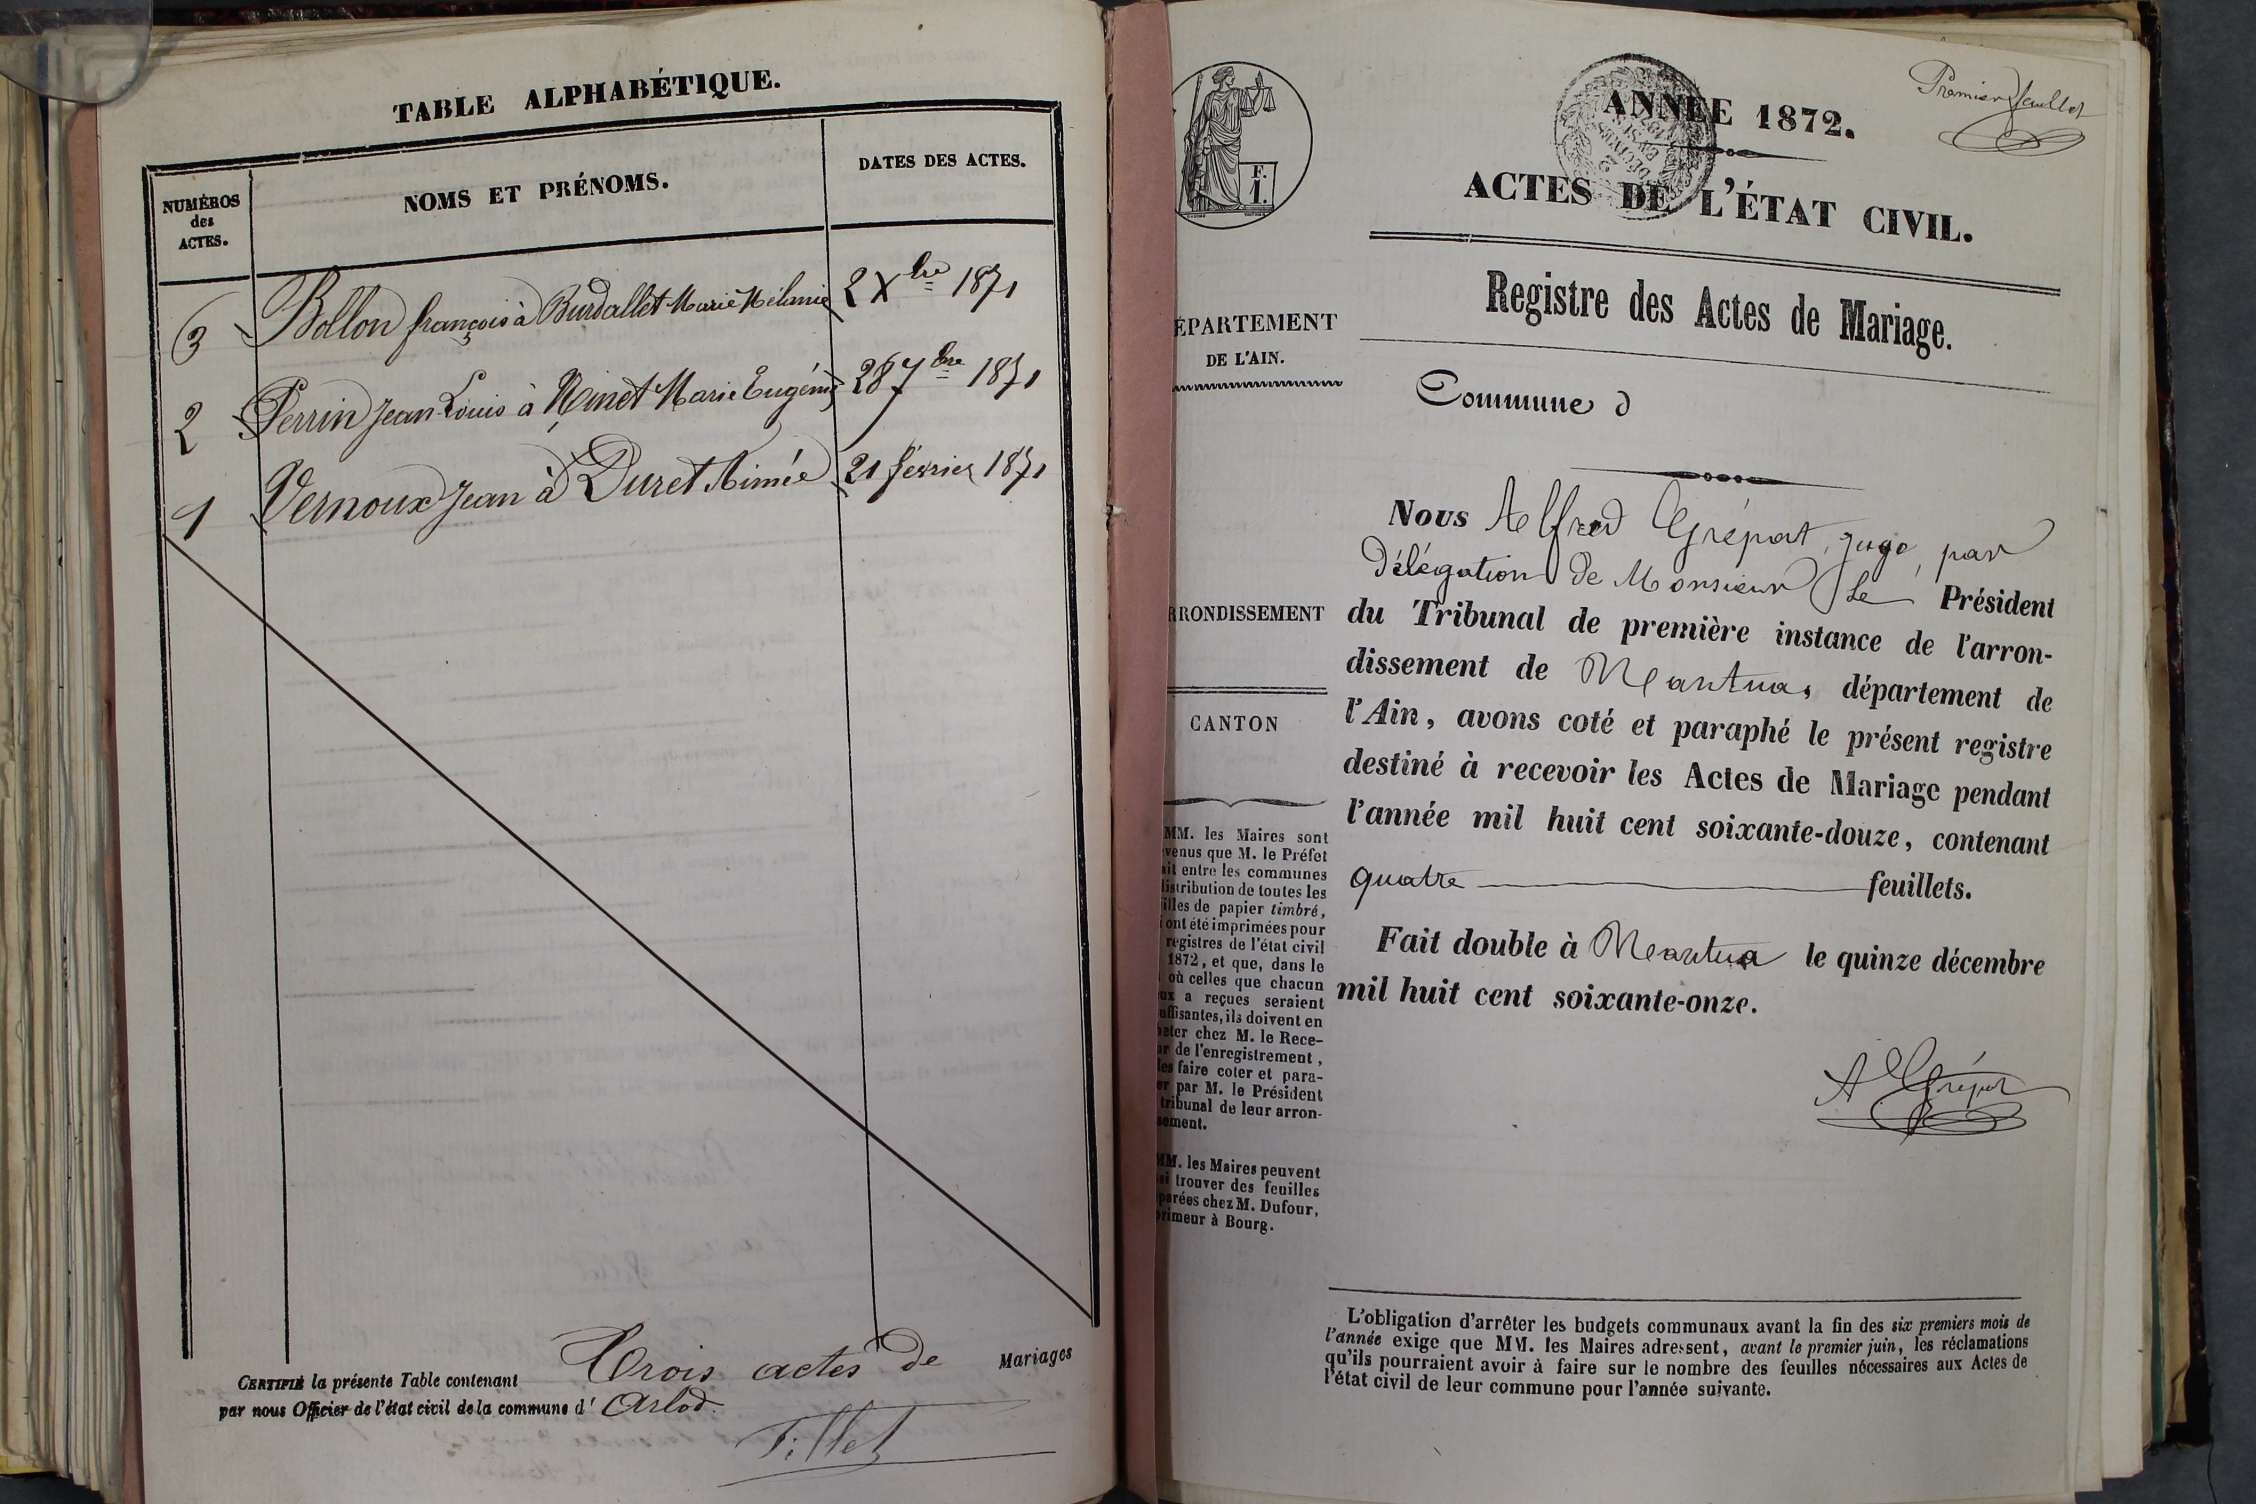 TABLE ALPHABÉTIQUE.
NUMÉROS
des
ACTES.
NOMS ET PRÉNOMS.
DATES DES ACTES.
3 Bollon françois à Burdallet Marie Mélanie 2 Xbre 1871
2 Perrin Jean Louis à Ninet Marie Eugénie 28 7bre 1871
1 Vernoux Jean à Duret Aimée 21 février 1871
CERTIFIÉ la présente Table contenant Trois actes de Mariages
par nous Officier de l'état civil de la commune d' Arlod.
Tillet
Premier feuillet
ANNÉE 1872.
ACTES DE L'ÉTAT CIVIL.
Registre des Actes de Mariage.
F.
1.
ÉPARTEMENT
DE L'AIN.
RRONDISSEMENT
CANTON
MM. les Maires sont
venus que M. le Préfet
ait entre les communes
distribution de toutes les
illes de papier timbré,
i ont été imprimées pour
registres de l'état civil
1872, et que, dans le
où celles que chacun
ux a reçues seraient
uffisantes, ils doivent en
heter chez M. le Rece-
ur de l'enregistrement,
les faire coter et para-
er par M. le Président
tribunal de leur arron-
sement.
MM. les Maires peuvent
si trouver des feuilles
parées chez M. Dufour,
primeur à Bourg.
Commune d
Nous Alfred Grépat, juge, par
délégation de Monsieur Le Président
du Tribunal de première instance de l'arron-
dissement de Nantua, département de
l'Ain, avons coté et paraphé le présent registre
destiné à recevoir les Actes de Mariage pendant
l'année mil huit cent soixante-douze, contenant
quatre feuillets.
Fait double à Nantua le quinze décembre
mil huit cent soixante-onze.
A Grépat
L'obligation d'arrêter les budgets communaux avant la fin des six premiers mois de
l'année exige que MM. les Maires adressent, avant le premier juin, les réclamations
qu'ils pourraient avoir à faire sur le nombre des feuilles nécessaires aux Actes de
l'état civil de leur commune pour l'année suivante.